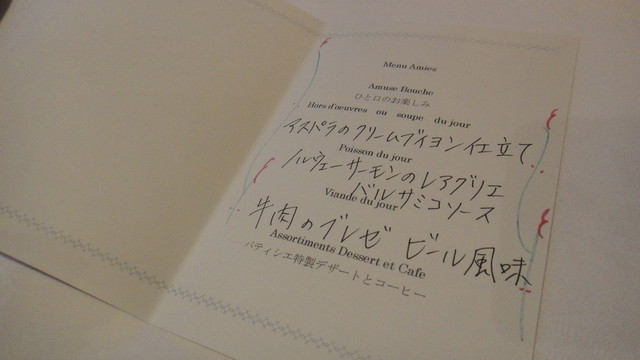 Menu Amiez
Amuse Bouche
ひと口のお楽しみ
Hors d'oeuvres ou soupe du jour
アスパラのクリームブイヨン仕立て
Poisson du jour
ノルウェーサーモンのレアグリエ
バルサミコソース
Viande du jour
牛肉のブレゼ ビール風味
Assortiments Dessert et Cafe
パティシエ特製デザートとコーヒー